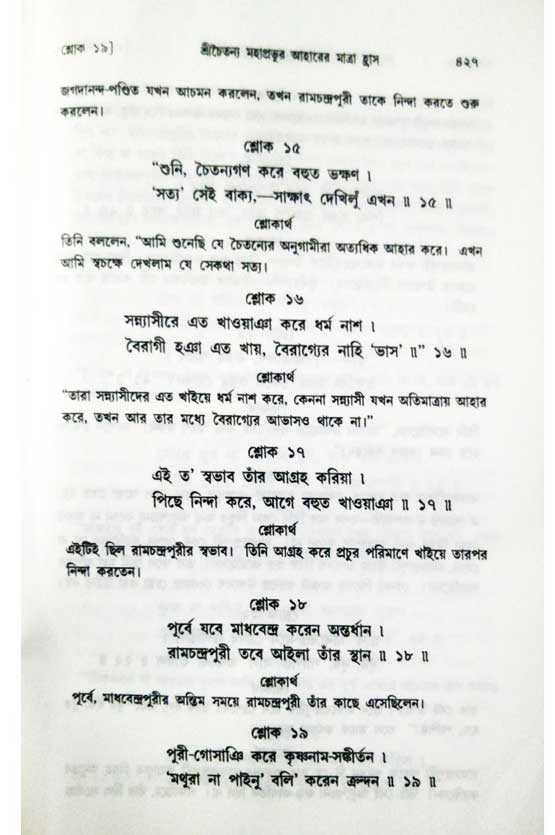 [শ্লোক ১৯] শ্রীচৈতন্য মহাপ্রভুর আহারের মাত্রা হ্রাস ৪২৭
জগদানন্দ-পণ্ডিত যখন আচমন করলেন, তখন রামচন্দ্রপুরী তাকে নিন্দা করতে শুরু
করলেন।
শ্লোক ১৫
“শুনি, চৈতন্যগণ করে বহুত ভক্ষণ ।
‘সত্য’ সেই বাক্য,—সাক্ষাৎ দেখিলুঁ এখন ॥ ১৫ ॥
শ্লোকার্থ
তিনি বললেন, “আমি শুনেছি যে চৈতন্যের অনুগামীরা অত্যধিক আহার করে। এখন
আমি স্বচক্ষে দেখলাম যে সেকথা সত্য।
শ্লোক ১৬
সন্ন্যাসীরে এত খাওয়াঞা করে ধর্ম নাশ ।
বৈরাগী হঞা এত খায়, বৈরাগ্যের নাহি ‘ভাস’ ॥” ১৬ ॥
শ্লোকার্থ
“তারা সন্ন্যাসীদের এত খাইয়ে ধর্ম নাশ করে, কেননা সন্ন্যাসী যখন অতিমাত্রায় আহার
করে, তখন আর তার মধ্যে বৈরাগ্যের আভাসও থাকে না।”
শ্লোক ১৭
এই ত’ স্বভাব তাঁর আগ্রহ করিয়া ।
পিছে নিন্দা করে, আগে বহুত খাওয়াঞা ॥ ১৭ ॥
শ্লোকার্থ
এইটিই ছিল রামচন্দ্রপুরীর স্বভাব। তিনি আগ্রহ করে প্রচুর পরিমাণে খাইয়ে তারপর
নিন্দা করতেন।
শ্লোক ১৮
পূর্বে যবে মাধবেন্দ্র করেন অন্তর্ধান ।
রামচন্দ্রপুরী তবে আইলা তাঁর স্থান ॥ ১৮ ॥
শ্লোকার্থ
পূর্বে, মাধবেন্দ্রপুরীর অন্তিম সময়ে রামচন্দ্রপুরী তাঁর কাছে এসেছিলেন।
শ্লোক ১৯
পুরী-গোসাঞি করে কৃষ্ণনাম-সঙ্কীর্তন ।
‘মথুরা না পাইনু’ বলি’ করেন ক্রন্দন ॥ ১৯ ॥